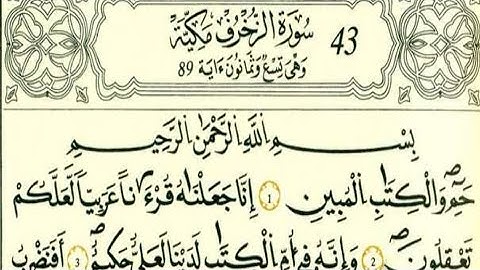 سُورَةُ الزُّخْرُفِ مَكِّيَّةٌ 43
وَهْيَ تِسْعٌ وَثَمَانُونَ ءَايَة 89
بِسْمِ اِللَّهِ اِلرَّحْمَٰنِ اِلرَّحِيمِ
حَمِٓ وَالْكِتَٰبِ اِلْمُبِينِ 1 إِنَّا جَعَلْنَٰهُ قُرْءَٰناً عَرَبِيّاً لَّعَلَّكُمْ
تَعْقِلُونَۖ 2 وَإِنَّهُۥ فِےٓ أُمِّ اِلْكِتَٰبِ لَدَيْنَا لَعَلِيٌّ حَكِيمٌۖ 3 أَفَنَضْرِبُ